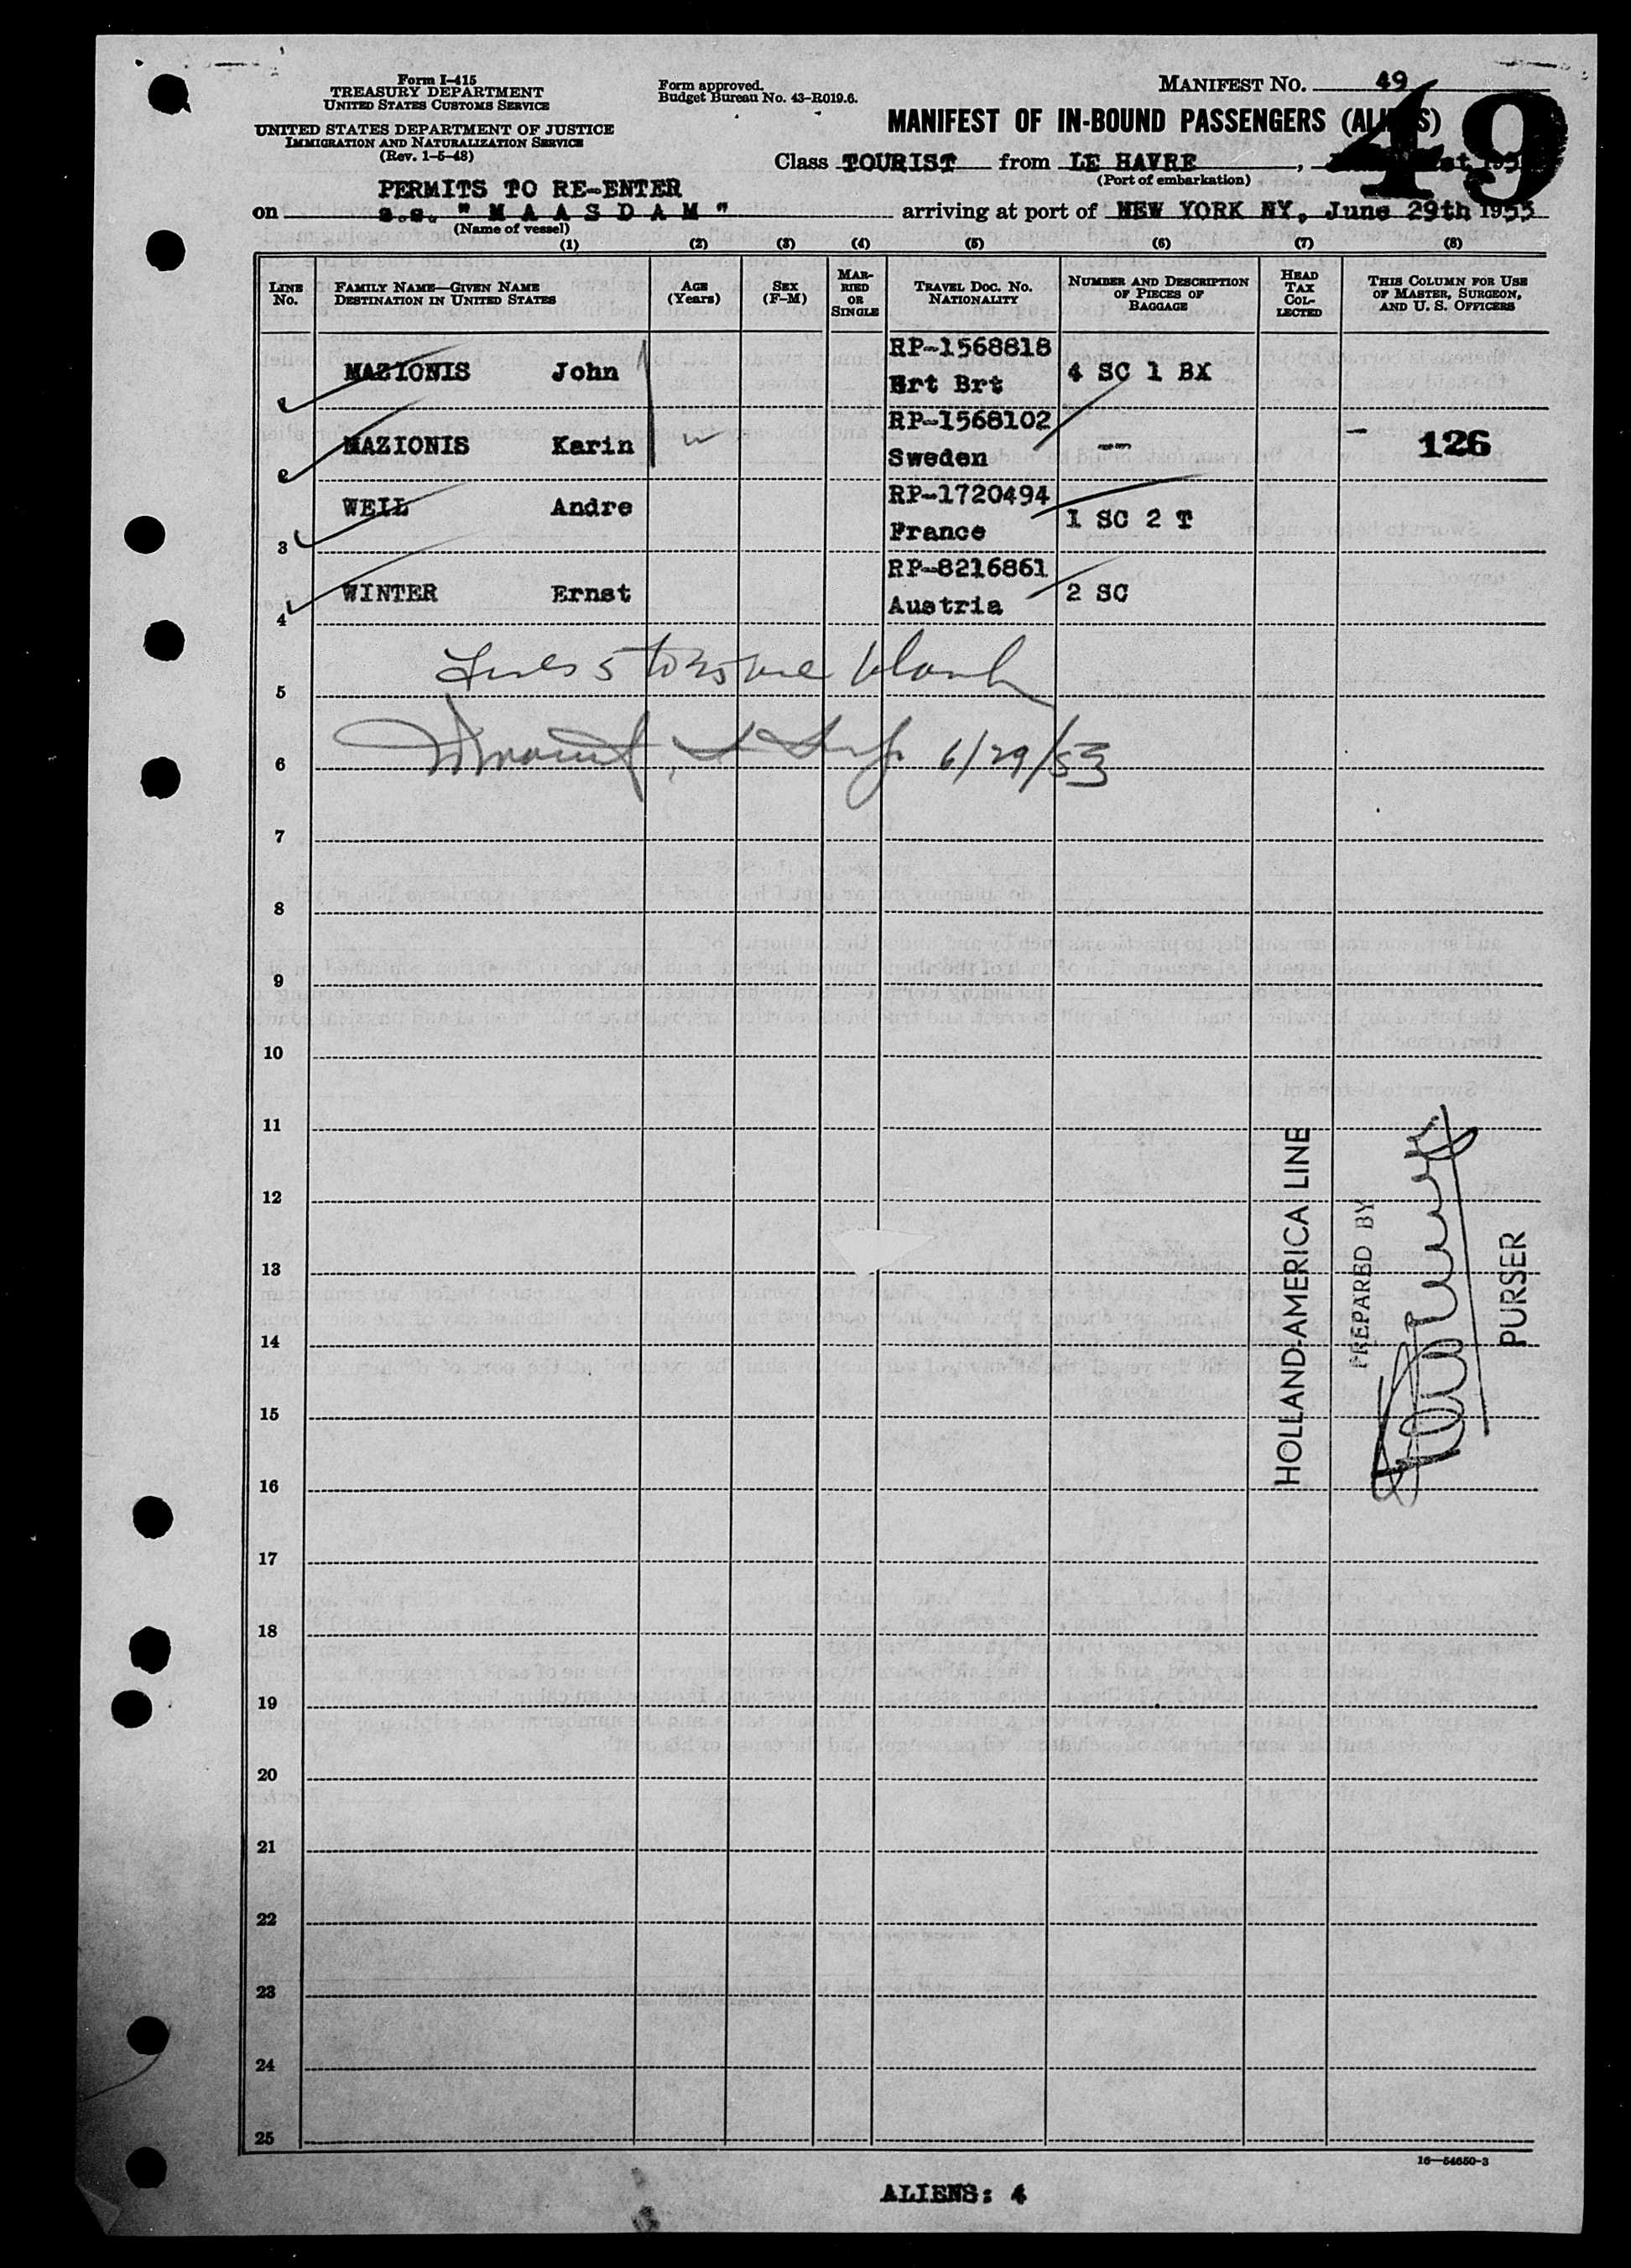 Form I-415
TREASURY DEPARTMENT
UNITED STATES CUSTOMS SERVICE
UNITED STATES DEPARTMENT OF JUSTICE
IMMIGRATION AND NATURALIZATION SERVICE
(Rev. 1-5-48)
Form approved.
Budget Bureau No. 43-R019.6.
MANIFEST NO. 49
49
MANIFEST OF IN-BOUND PASSENGERS (ALIENS)
Class TOURIST from LE HAVRE,
(Port of embarkation)
PERMITS TO RE-ENTER
on s.s. "MAASDAM" arriving at port of NEW YORK NY, June 29th 1953
(Name of vessel)
(1) (2) (3) (4) (5) (6) (7) (8)
LINE No. FAMILY NAME—GIVEN NAME DESTINATION IN UNITED STATES AGE (Years) SEX (F-M) MARRIED OR SINGLE TRAVEL DOC. NO. NATIONALITY NUMBER AND DESCRIPTION OF PIECES OF BAGGAGE HEAD TAX COLLECTED THIS COLUMN FOR USE OF MASTER, SURGEON, AND U. S. OFFICERS
RP-1568818
MAZIONIS John Brt 4 SC 1 BX
RP-1568102
MAZIONIS Karin Sweden -- - 126
RP-1720494
3 WEIL Andre France 1 SC 2 T
RP-8216861
4 WINTER Ernst Austria 2 SC
Lines 5 to 25 are blank
5
6/29/53
6
7
8
9
10
11
12
13
14
15
16
HOLLAND-AMERICA LINE
PREPARED BY
PURSER
17
18
19
20
21
22
23
24
25
16—54650-3
ALIENS: 4